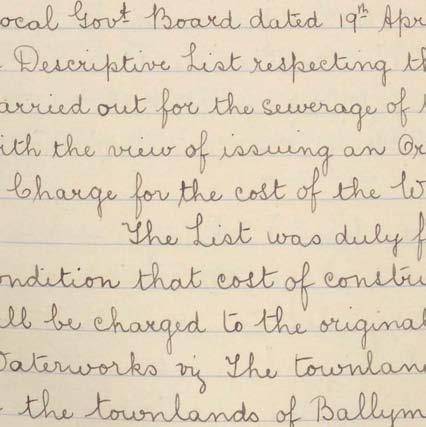 ocal Govt Board dated 19th Apr
Descriptive List respecting th
arried out for the sewerage of
ith the view of issuing an Or
Charge for the cost of the W
The List was duly f
ondition that cost of constru
ll be charged to the original
Waterworks viz The townlan
the townlands of Ballym